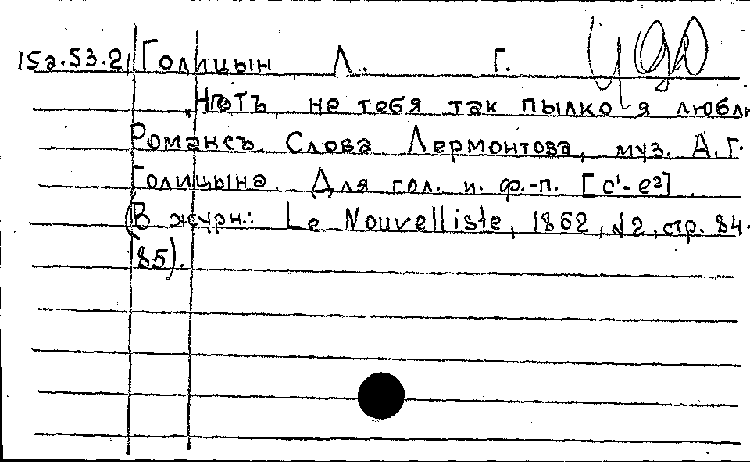 15а.53.2 Голицын Л. Г.
Нѣтъ не тебя так пылко я люблю
Романсъ. Слова Лермонтова, муз. Л. Г.
Голицына. Для гол. и. ф.-п. [c¹-e²]
(В журн.: Le Nouvelliste, 1862, №2, стр. 84-
85).